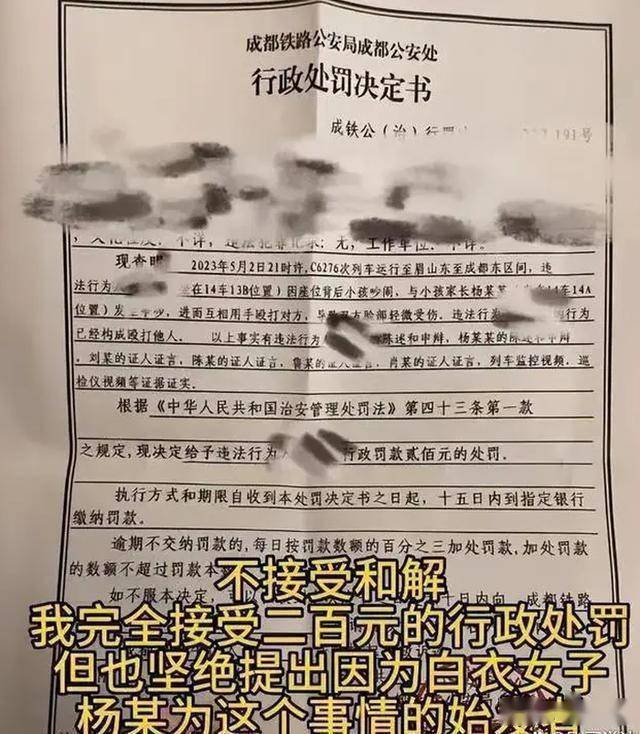 成都铁路公安局成都公安处
行政处罚决定书
成铁公(治)行罚 191号
违法犯罪记录:无,工作单位:不详。
现查明 2023年5月2日21时许,C6276次列车运行至眉山东至成都东区间,违
法行为 在14车13B位置)因座位背后小孩吵闹,与小孩家长杨某某 14车14A
位置)发生 吵,进而互相用手殴打对方,导致双方脸部轻微受伤。违法行为 的行为
已经构成殴打他人。 以上事实有违法行为 陈述和申辩,杨某某的陈述和申辩,
刘某的证人证言,陈某的证人证言,鲁某的证人证言,肖某的证人证言,列车监控视频,巡
检仪视频等证据证实。
根据《中华人民共和国治安管理处罚法》第四十三条第一款
之规定,现决定给予违法行为人 行政罚款贰佰元的处罚。
执行方式和期限自收到本处罚决定书之日起,十五日内到指定银行
缴纳罚款。
逾期不交纳罚款的,每日按罚款数额的百分之三加处罚款,加处罚款
的数额不超过罚款本
如不服本决定,可以 十日内向 成都铁路
不接受和解
我完全接受二百元的行政处罚
但也坚绝提出因为白衣女子
杨某为这个事情的始